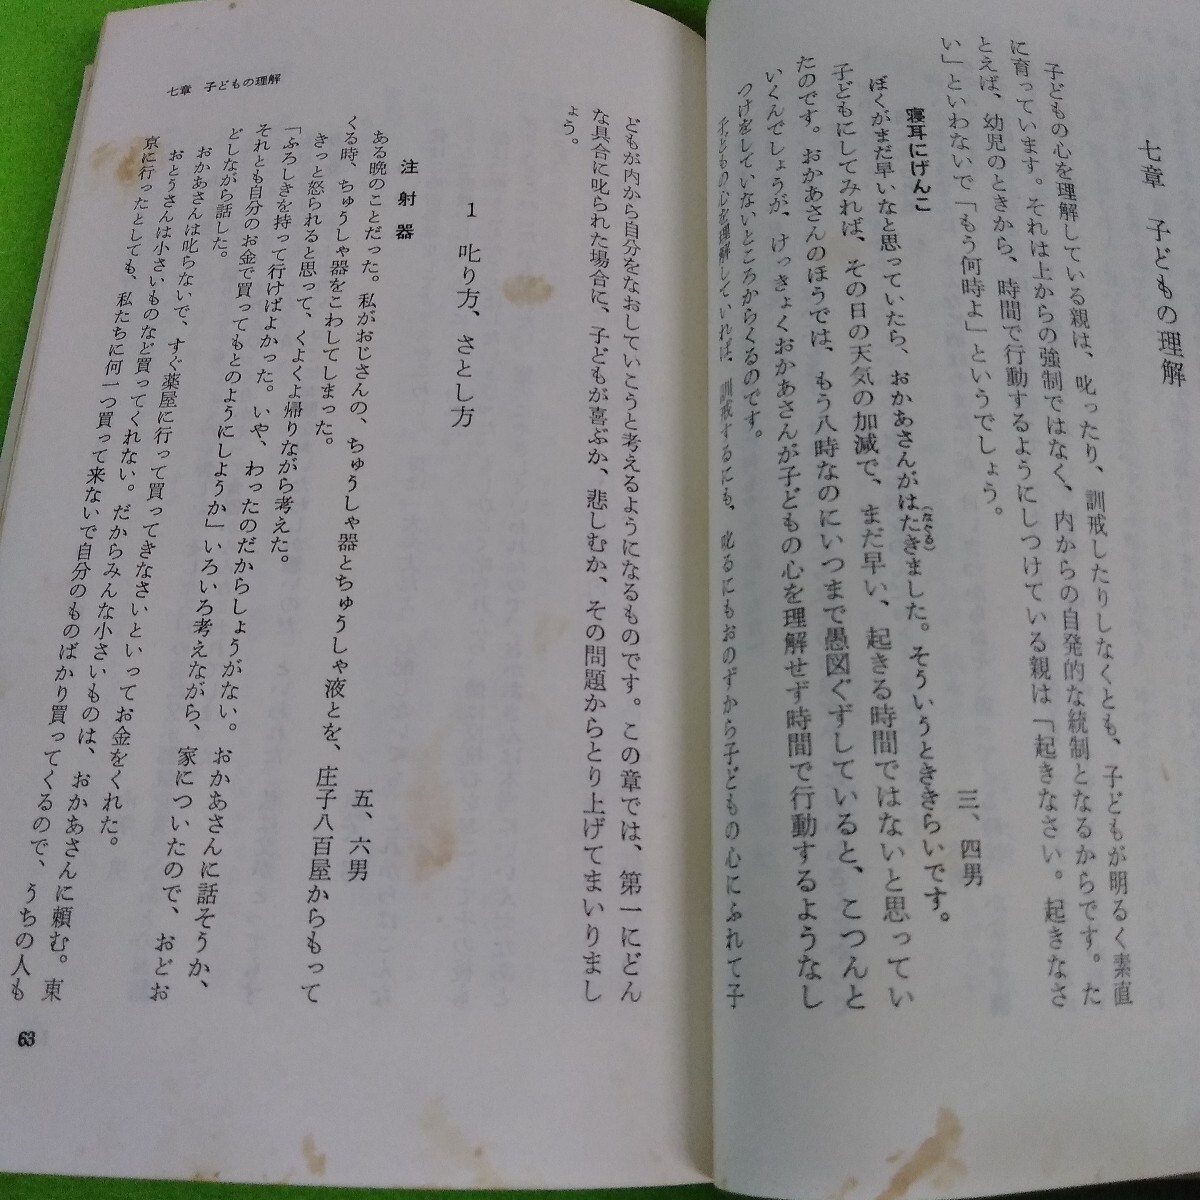 七章　子どもの理解
子どもの心を理解している親は、叱ったり、訓戒したりしなくとも、子どもが明るく素直
に育っています。それは上からの強制ではなく、内からの自発的な統制となるからです。た
とえば、幼児のときから、時間で行動するようにしつけている親は「起きなさい。起きなさ
い」といわないで「もう何時よ」というでしょう。
寝耳にげんこ
三、四男
ぼくがまだ早いなと思っていたら、おかあさんがはたきました。そういうときらいです。
(なぐる)
子どもにしてみれば、その日の天気の加減で、まだ早い、起きる時間ではないと思ってい
たのです。おかあさんのほうでは、もう八時なのにいつまで愚図ぐずしていると、こつんと
いくんでしょうが、けっきょくおかあさんが子どもの心を理解せず時間で行動するようなし
つけをしていないところからくるのです。
子どもの心を理解していれば、訓戒するにも、叱るにもおのずから子どもの心にふれて子
どもが内から自分をなおしていこうと考えるようになるものです。この章では、第一にどん
な具合に叱られた場合に、子どもが喜ぶか、悲しむか、その問題からとり上げてまいりまし
ょう。
1　叱り方、さとし方
注射器
五、六男
ある晩のことだった。私がおじさんの、ちゅうしゃ器とちゅうしゃ液とを、庄子八百屋からもって
くる時、ちゅうしゃ器をこわしてしまった。
きっと怒られると思って、くよくよ帰りながら考えた。
「ふろしきを持って行けばよかった。いや、わったのだからしょうがない。おかあさんに話そうか、
それとも自分のお金で買ってもとのようにしようか」いろいろ考えながら、家についたので、おどお
どしながら話した。
おかあさんは叱らないで、すぐ薬屋に行って買ってきなさいといってお金をくれた。
おとうさんは小さいものなど買ってくれない。だからみんな小さいものは、おかあさんに頼む。東
京に行ったとしても、私たちに何一つ買って来ないで自分のものばかり買ってくるので、うちの人も
七章　子どもの理解
63